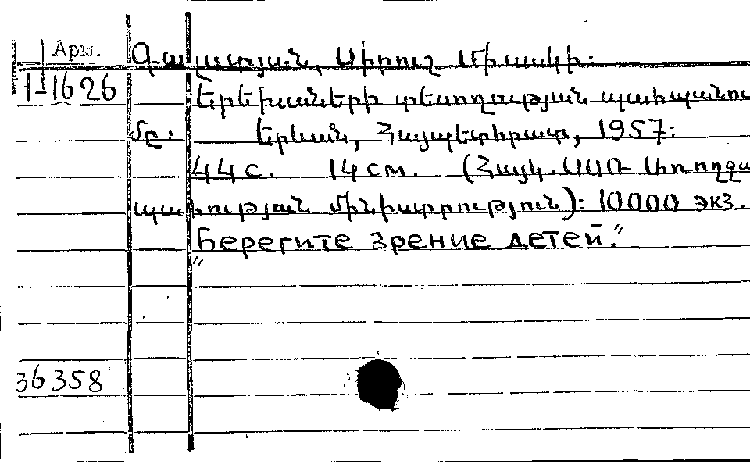 Арм.
Գալստյան, Սիրուշ Միսակի:
1-1626
Երեխաների տեսողության պահպանու
մը. Երևան, Հայպետհրատ, 1957:
44 с. 14 см. (Հայկ. ՍՍՌ Առողջա
պահության մինիստրություն): 10000 экз.
"Берегите зрение детей."
36358